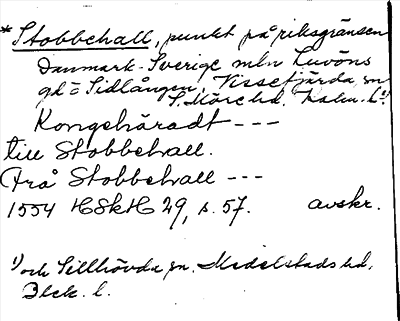 * Stobbehall, punkt på riksgränsen
Danmark-Sverige mln Luvöns
gd = Sidlången, Vissefjärda sn
S. Möre hd. Kalm. L. ¹)
Kongehäradt ---
till Stobbehall.
Frå Stobbehall ---
1554 HSkH 29, s. 57. avskr.
¹) och Sillhövda sn. Medelstads hd.
Blek. l.